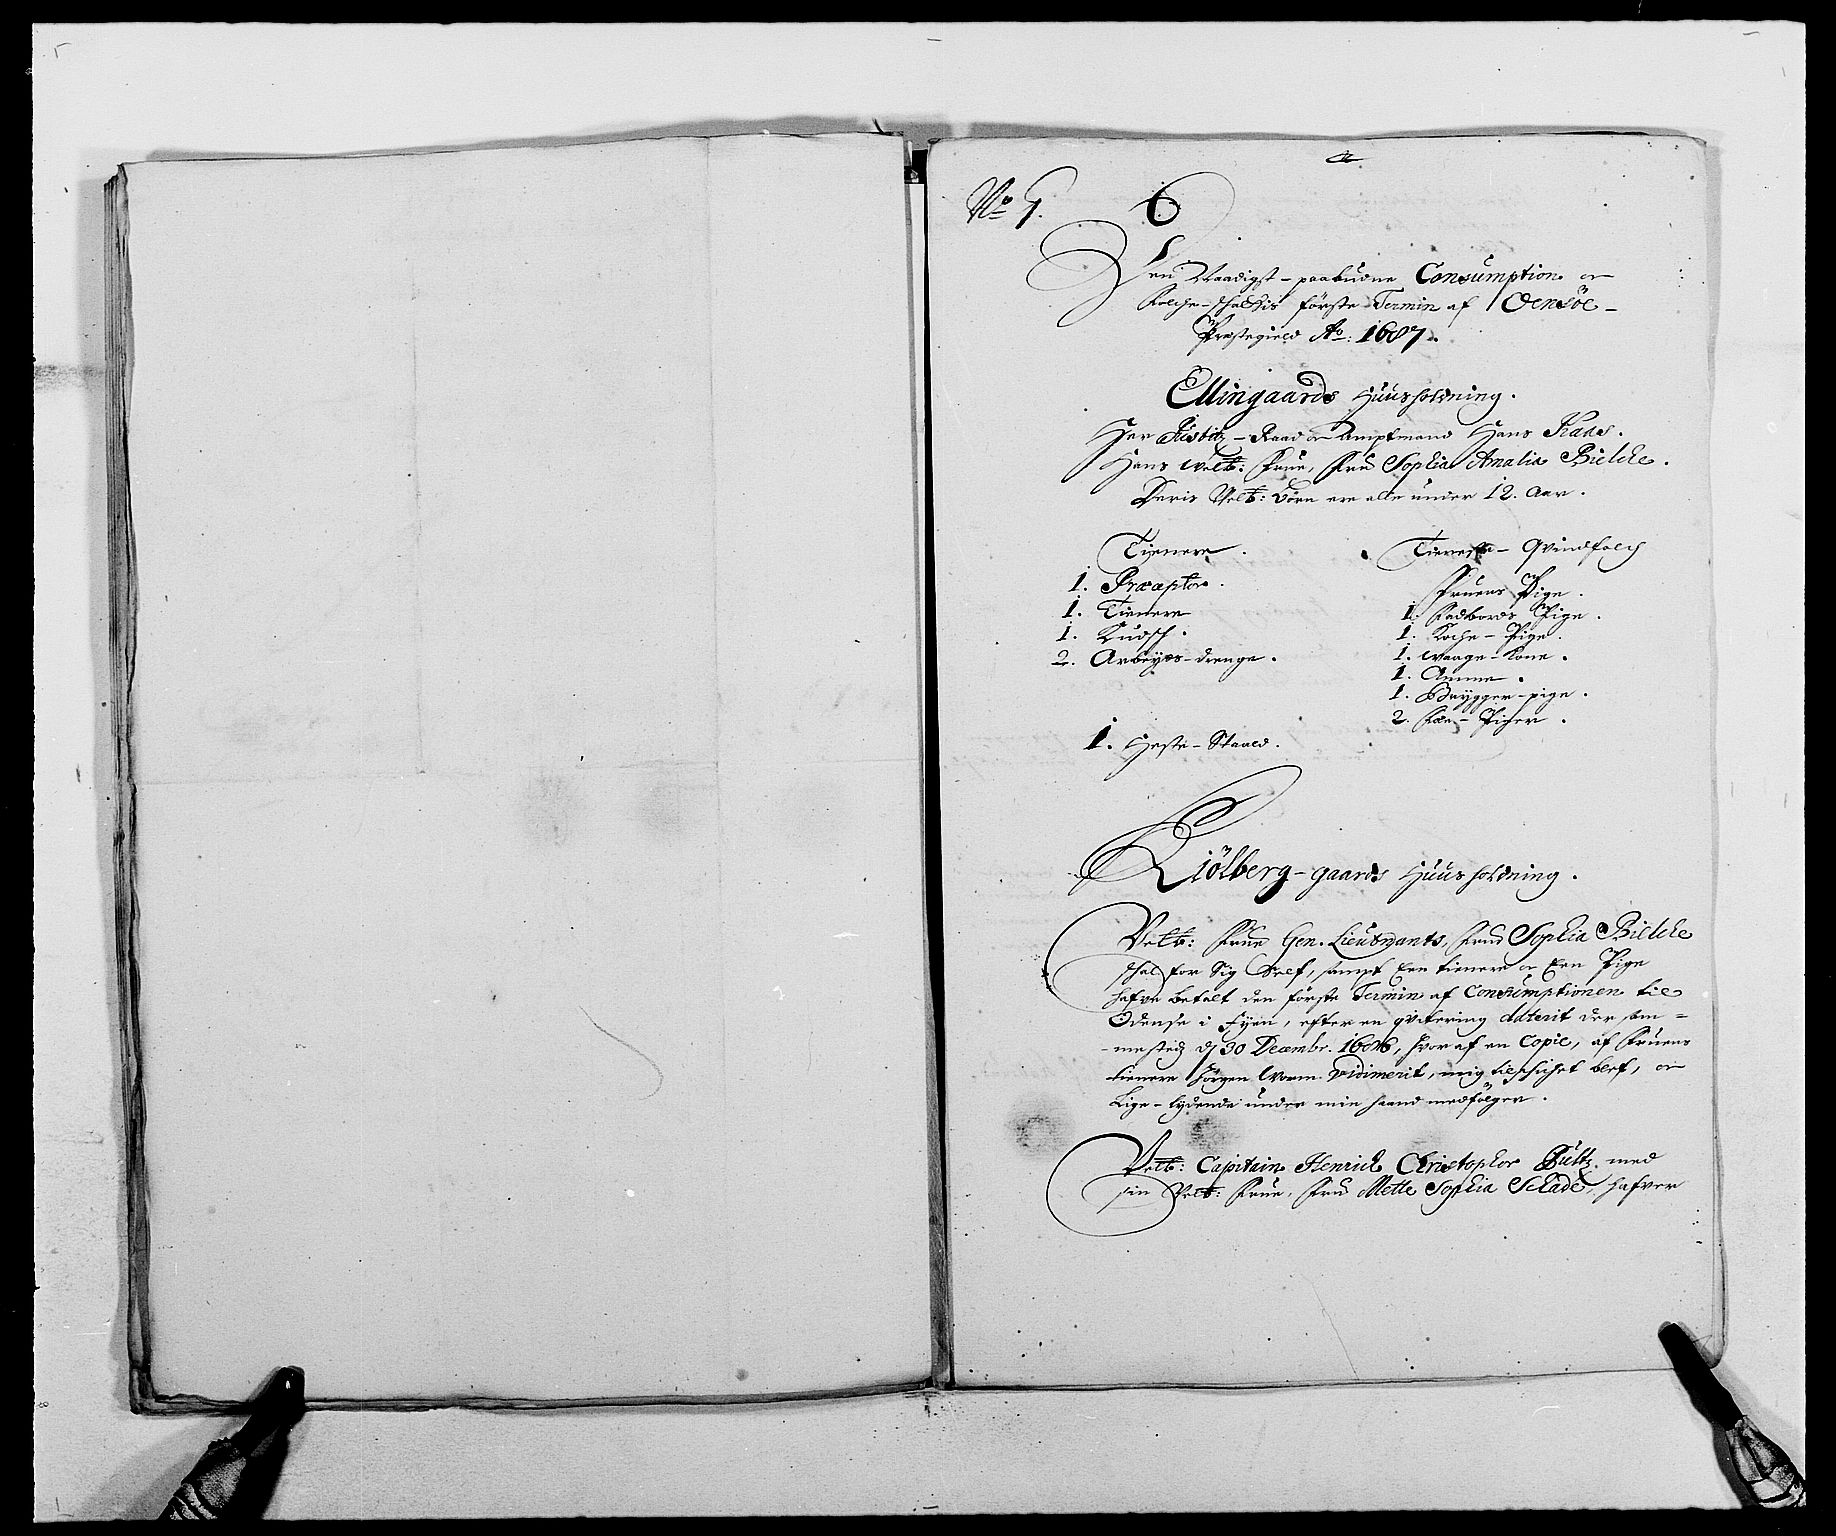 No 1. 6
Den Naadigst-paabudne Consumption oc
Folche-schattis förste Termin af Onsöe-
Præstegield Ao: 1687.
Ellingaards Huusholdning.
Her Justitz-Raad oc Amptmand Hans Kaas.
Hans Velb: Frue, Fru Sophia Amalia Bielche.
Deris Velb: Börn ere alle under 12. Aar.
Tienere.
1. Præceptor.
1. Tienere
1. Kudsch.
2. Arbeyds-drenge.
1. Heste-Stald.
Tieneste-Qvindfolch
Fruens Pige.
1. Fadbords Pige.
1. Koche-Pige.
1. Vaage-Kone.
1. Amme.
1. Brygger-pige.
2. Fæe-Piger.
Kiölberg-gaards Huusholdning.
Velb: Frue Gen. Lieutnants, Frue Sophia Bielche
schal for Sig Self, sampt Een tienere oc Een Pige
hafve betalt den förste Termin af Consumptionen til
Odense i Fyen, efter en qvitering daterit der sam=
-mesteds d 30 Decembr. 1686, hvor af en Copie, af Fruens
tienere Jörgen Worm vidimerit, mig tilschichet blef, oc
Lige-lydende under min haand medfölger.
Velb: Capitain Henrich Christopher Bültz. med
sin Velb: Frue, Fru Mette Sophia Schade, hafver